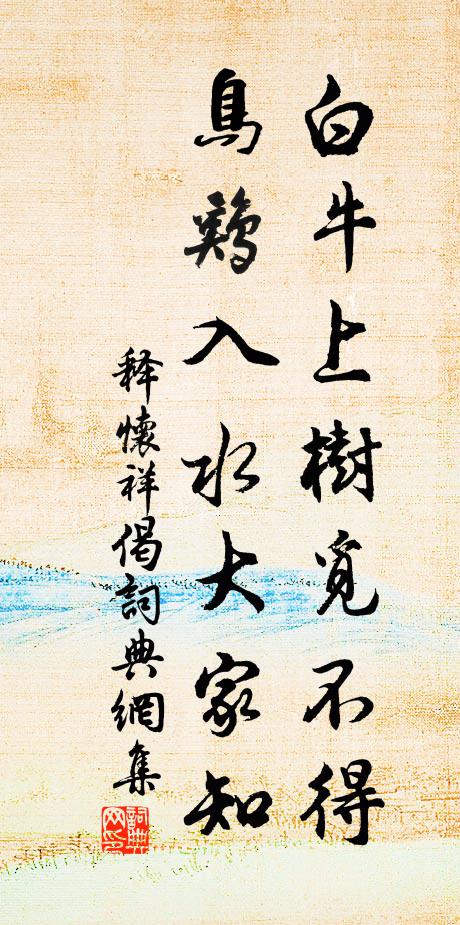 白牛上樹覓不得
烏鷄入水大家知
释懷祥偈詞典網集
詞典网印